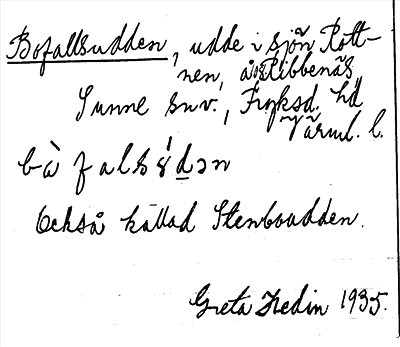 Bofallsudden, udde i sjön Rott-
nen, å Ribbenäs,
Sunne snv., Fryksd. hd
Värml. l.
bà falsúdən
Också kallad Stenboudden.
Greta Hedin 1935.